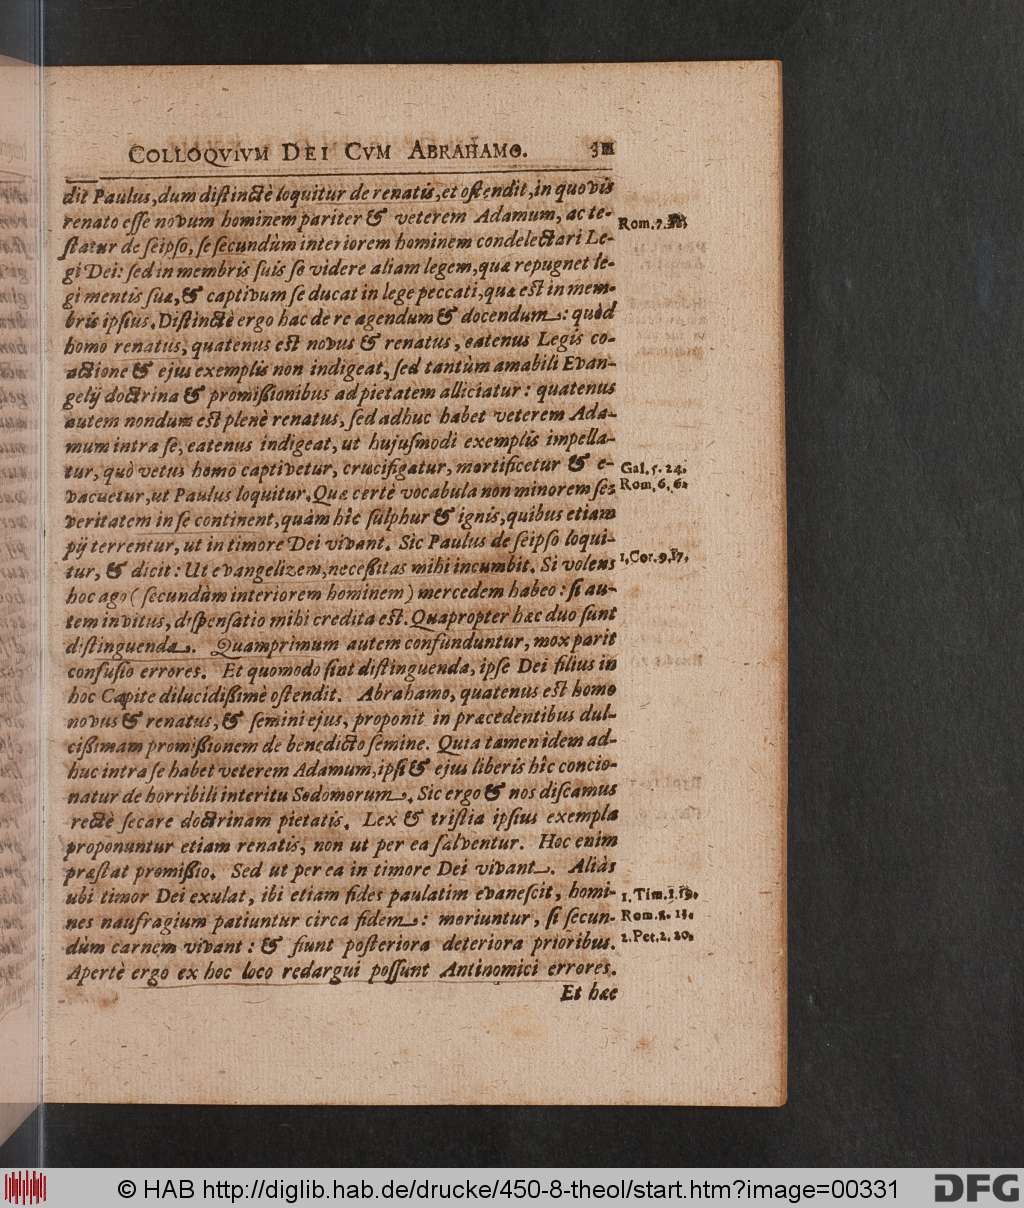 COLLOQVIVM DEI CVM ABRAHAMO.
dit Paulus, dum distinctè loquitur de renatis, et ostendit, in quovis
renato esse novum hominem pariter & veterem Adamum, ac te-
statur de seipso, se secundùm interiorem hominem condelectari Le-
gi Dei: sed in membris suis se videre aliam legem, quæ repugnet le-
gi mentis suæ, & captivum se ducat in lege peccati, quæ est in mem-
bris ipsius. Distinctè ergo hac de re agendum & docendum: quòd
homo renatus, quatenus est novus & renatus, eatenus Legis co-
actione & ejus exemplis non indigeat, sed tantùm amabili Evan-
gelij doctrina & promissionibus ad pietatem alliciatur: quatenus
autem nondum est plenè renatus, sed adhuc habet veterem Ada-
mum intra se, eatenus indigeat, ut hujusmodi exemplis impella-
tur, quò vetus homo captivetur, crucifigatur, mortificetur & e-
vacuetur, ut Paulus loquitur. Quæ certè vocabula non minorem se-
veritatem in se continent, quàm hîc sulphur & ignis, quibus etiam
pij terrentur, ut in timore Dei vivant. Sic Paulus de seipso loqui-
tur, & dicit: Ut evangelizem, necessitas mihi incumbit. Si volens
hoc ago (secundùm interiorem hominem) mercedem habeo: si au-
tem invitus, dispensatio mihi credita est. Quapropter hæc duo sunt
distinguenda. Quamprimum autem confunduntur, mox parit
confusio errores. Et quomodo sint distinguenda, ipse Dei filius in
hoc Capite dilucidissimè ostendit. Abrahamo, quatenus est homo
novus & renatus, & semini ejus, proponit in præcedentibus dul-
cissimam promissionem de benedicto semine. Quia tamen idem ad-
huc intra se habet veterem Adamum, ipsi & ejus liberis hîc concio-
natur de horribili interitu Sodomorum. Sic ergo & nos discamus
rectè secare doctrinam pietatis. Lex & tristia ipsius exempla
proponuntur etiam renatis, non ut per ea salventur. Hoc enim
præstat promissio. Sed ut per ea in timore Dei vivant. Aliàs
ubi timor Dei exulat, ibi etiam fides paulatim evanescit, homi-
nes naufragium patiuntur circa fidem: moriuntur, si secun-
dùm carnem vivant: & fiunt posteriora deteriora prioribus.
Apertè ergo ex hoc loco redargui possunt Antinomici errores.
Et hæc
Rom. 7.
Gal. 5. 24.
Rom. 6. 6.
1. Cor. 9. 17.
1. Tim. 1. 19.
Rom. 8. 13.
2. Pet. 2. 20.
© HAB http://diglib.hab.de/drucke/450-8-theol/start.htm?image=00331
DFG